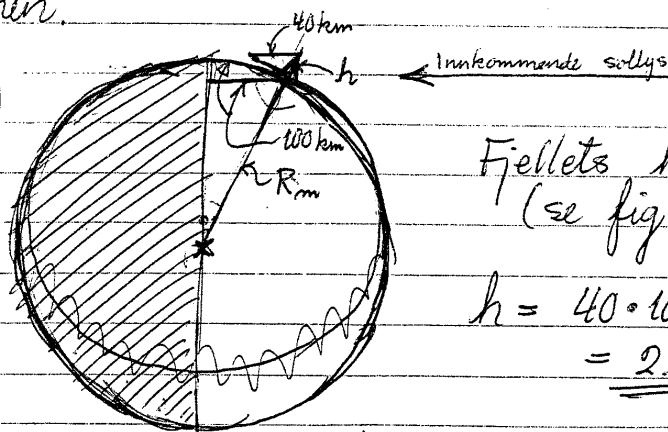 40km
h
Innkommende sollys
100km
Rm
Fjellets
(se fig
h = 40 · 10
= 2.